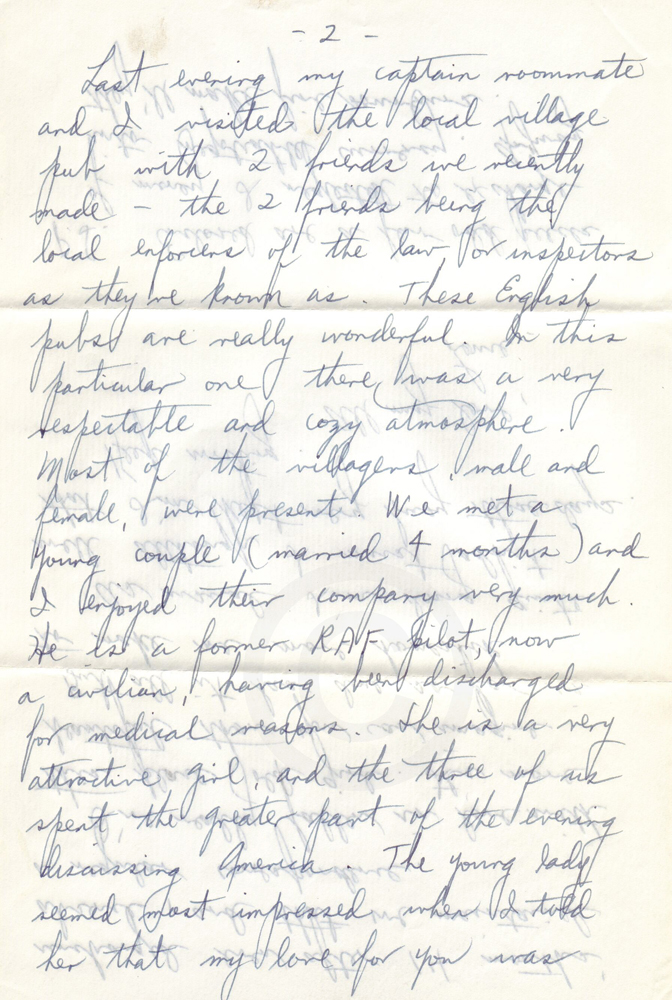 - 2 -
Last evening my captain roommate
and I visited the local village
pub with 2 friends we recently
made - the 2 friends being the
local enforcers of the law, or inspectors
as they're known as. These English
pubs are really wonderful. In this
particular one there was a very
respectable and cozy atmosphere.
Most of the villagers, male and
female, were present. We met a
young couple (married 4 months) and
I enjoyed their company very much.
He is a former RAF pilot, now
a civilian, having been discharged
for medical reasons. She is a very
attractive girl, and the three of us
spent the greater part of the evening
discussing America. The young lady
seemed most impressed when I told
her that my love for you was